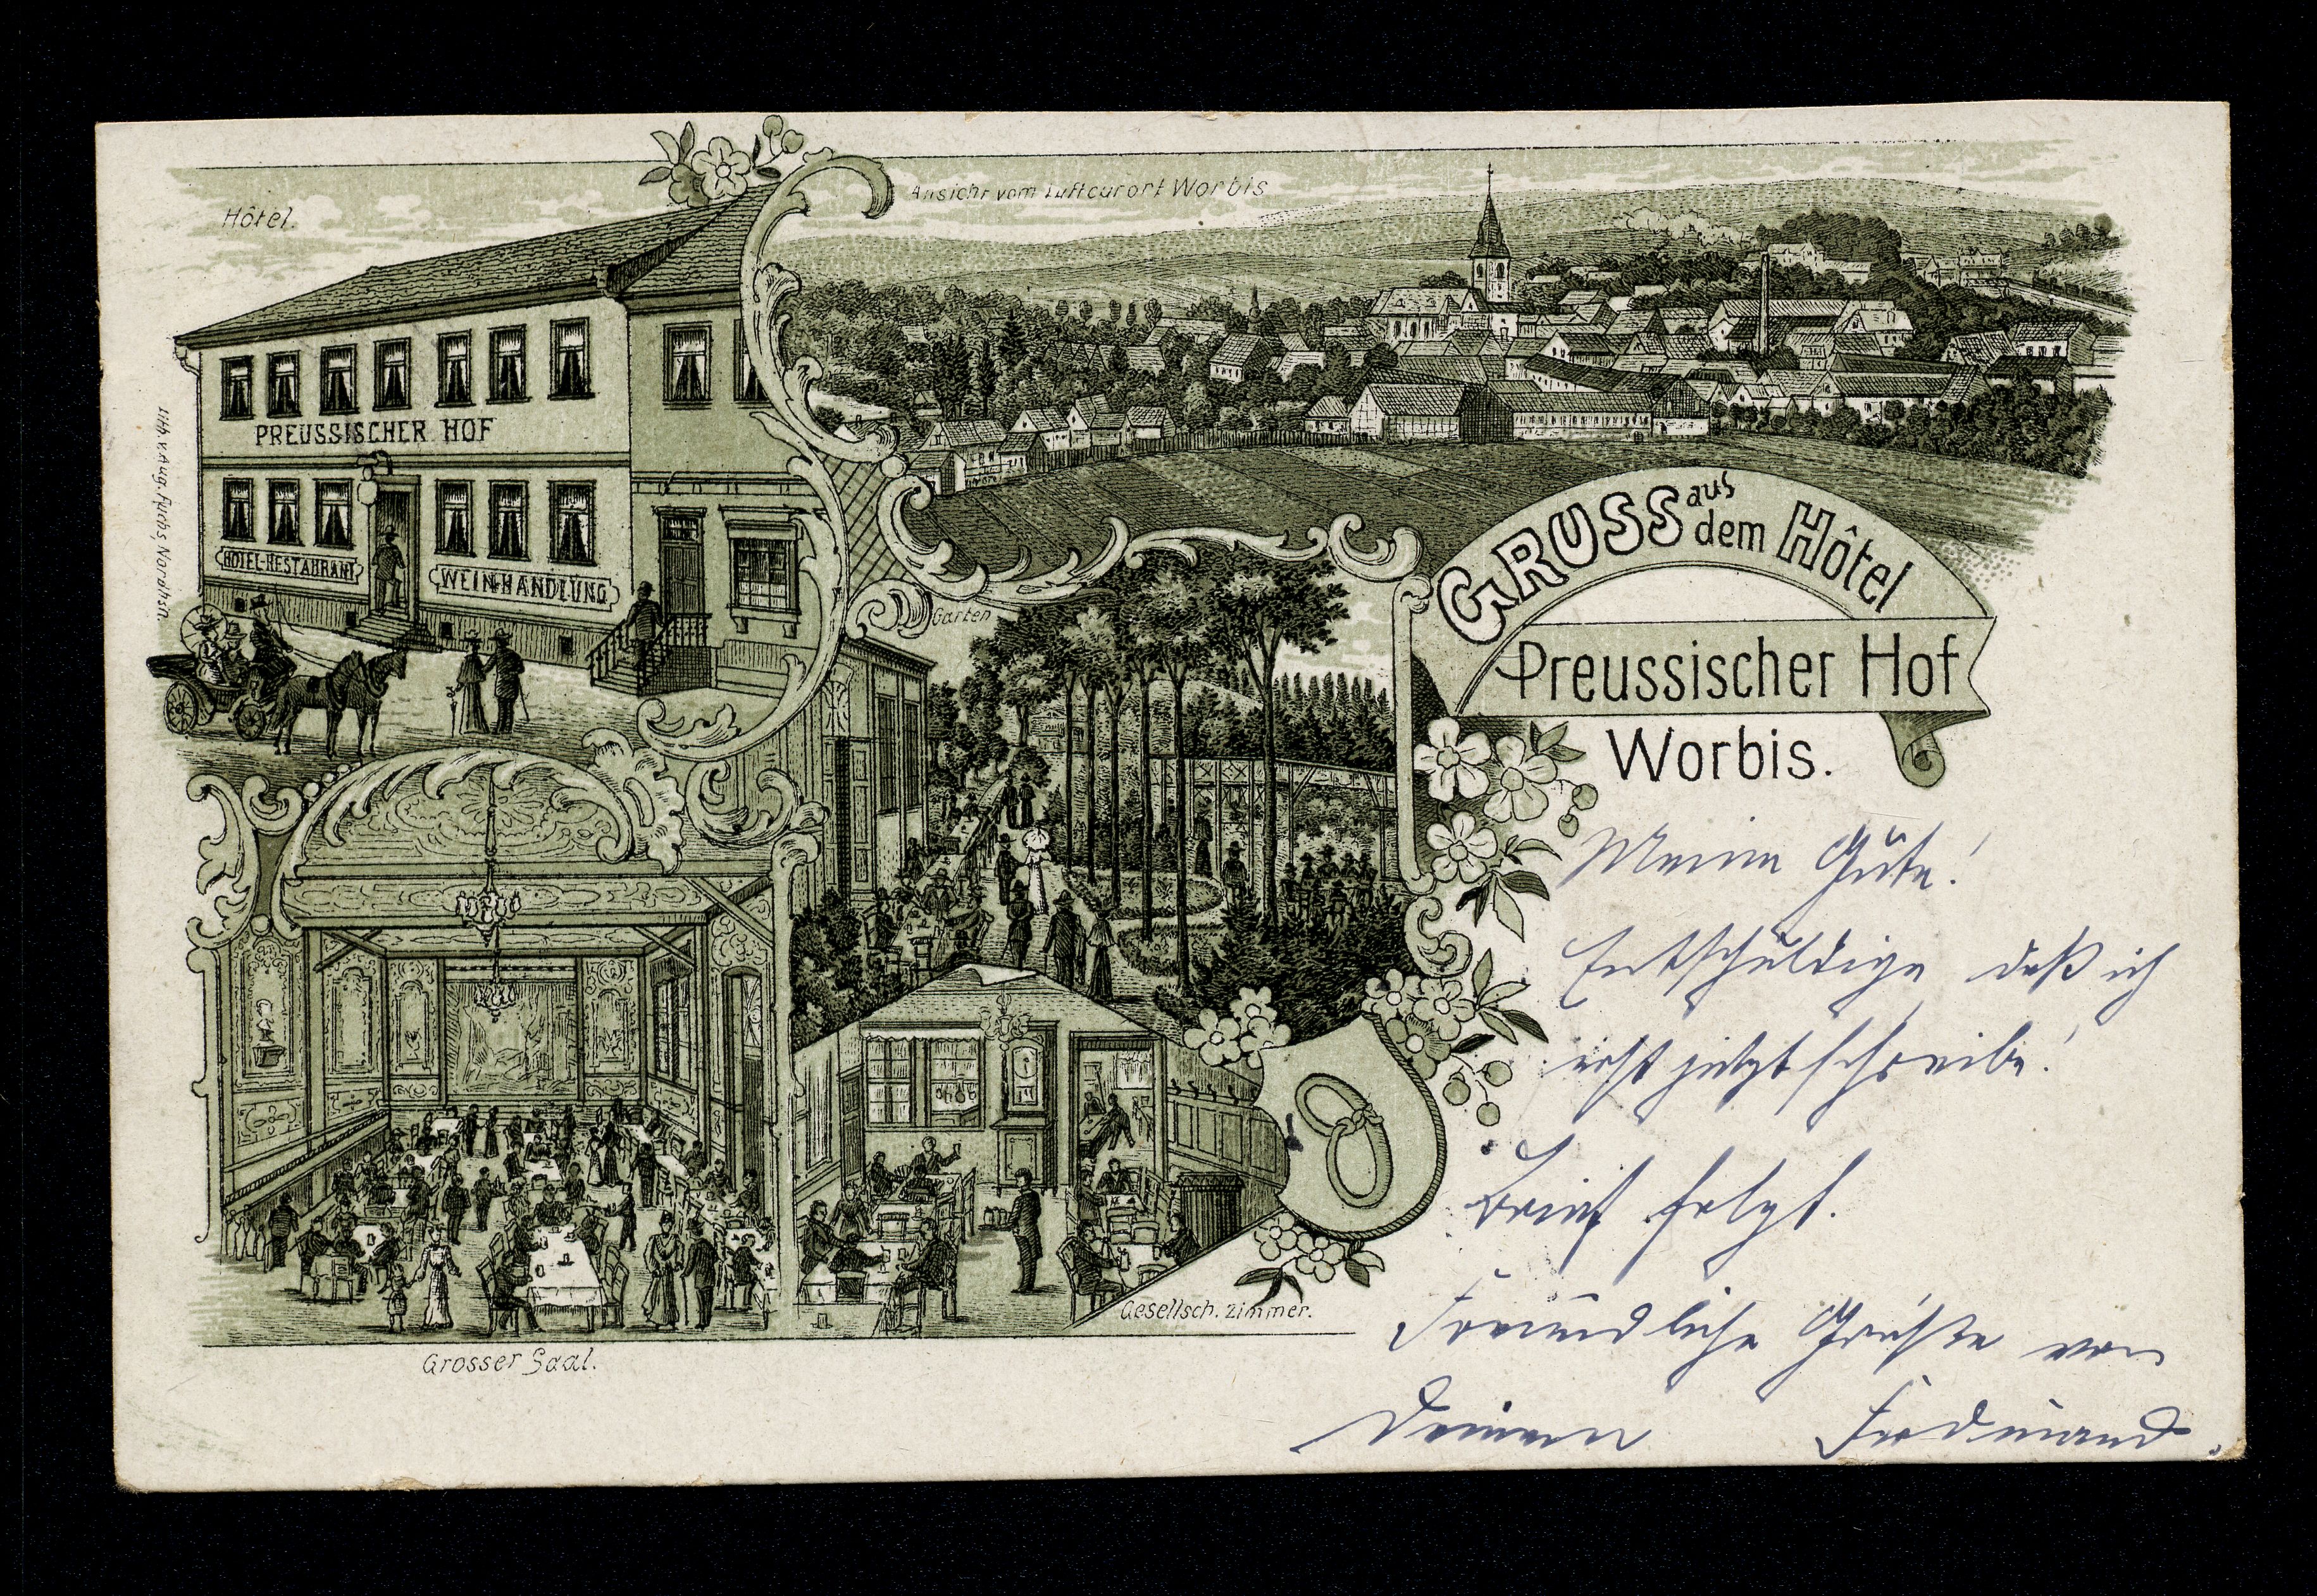 Hôtel.
Ansicht vom Luftcurort Worbis
PREUSSISCHER HOF
HOTEL-RESTAURANT
WEIN-HANDLUNG
Lith. v. Aug. Fuchs, Nordhsn.
Garten
GRUSS aus dem Hôtel
Preussischer Hof
Worbis.
Meine Gute!
Entschuldige daß ich
erst jetzt schreibe!
Brief folgt.
Freundliche Grüße von
Deinem Ferdinand.
Gesellsch. Zimmer.
Grosser Saal.